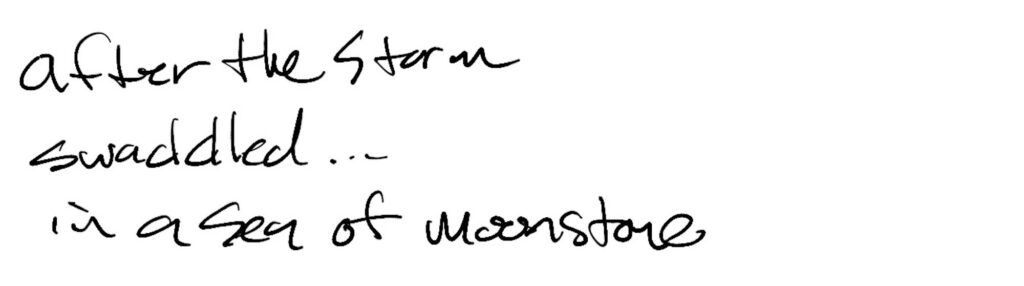 after the storm
swaddled...
in a sea of moonstone